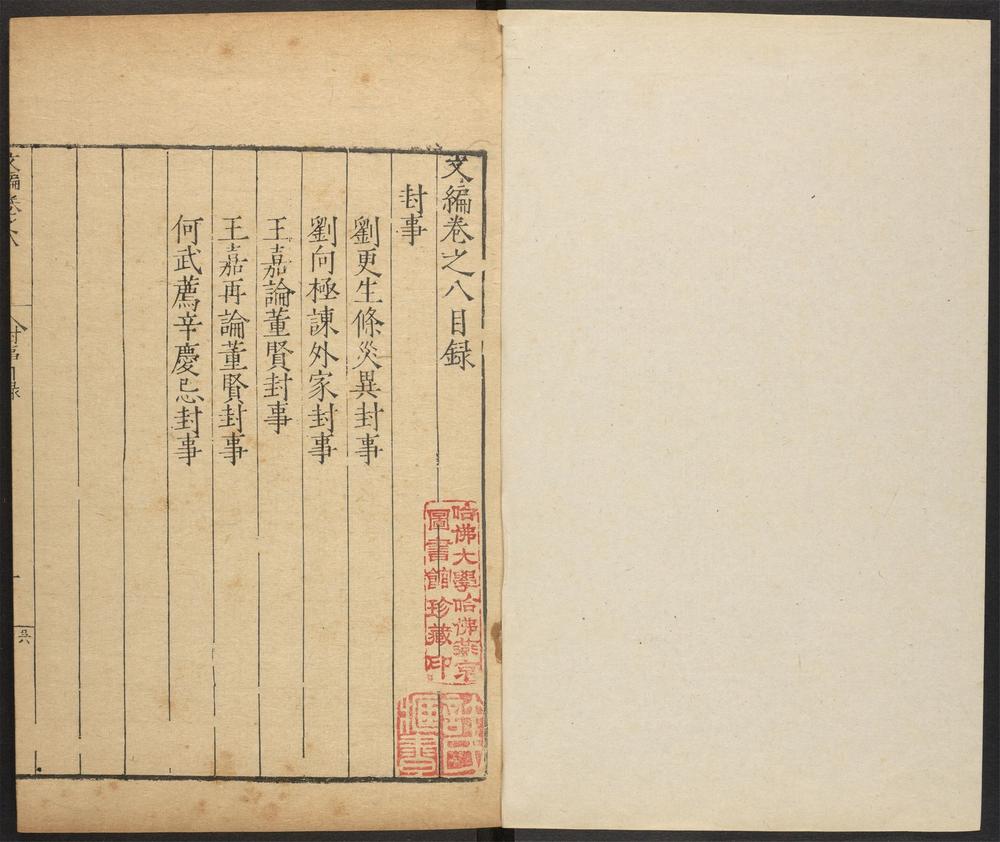 文編卷之八目録
封事
劉更生條災異封事
劉向極諌外家封事
王嘉論董賢封事
王嘉再論董賢封事
何武薦辛慶忌封事
哈佛大學哈佛燕京
圖書館珍藏印
文編卷之八